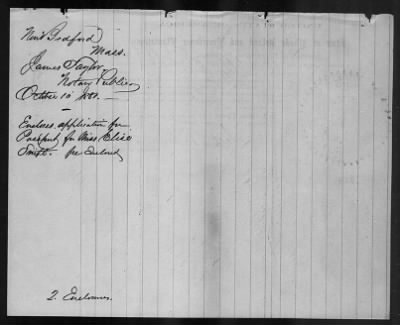 New Bedford
Mass.
James Taylor,
Notary Public
October 10
—
Encloses application for
Passport for Miss Eliza
Smith. fee Enclosed
2. Enclosures.